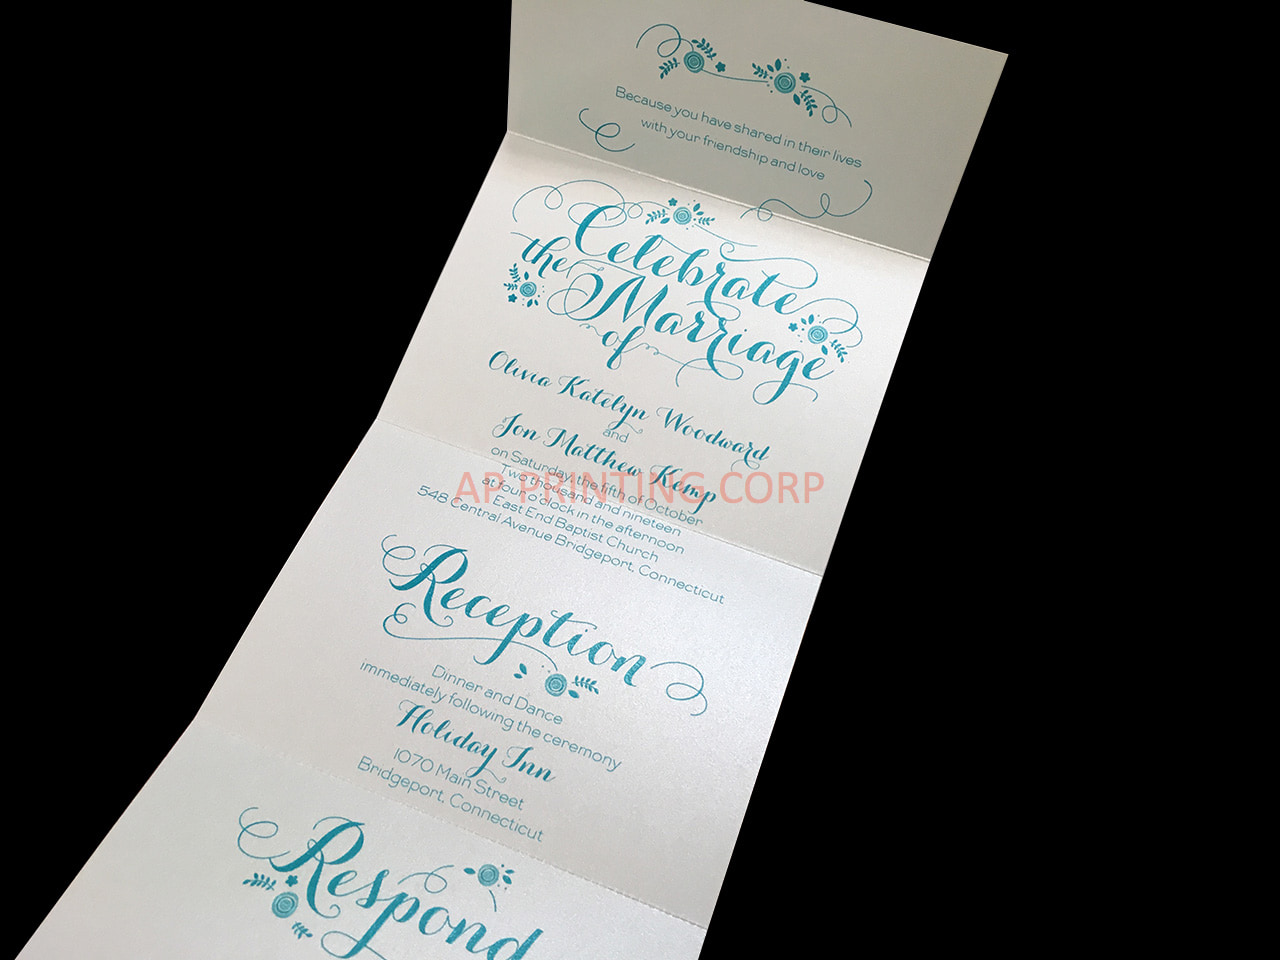 Because you have shared in their lives
with your friendship and love
Celebrate
the Marriage
of
Olivia Katelyn Woodward
and
Jon Matthew Kemp
on Saturday, the fifth of October
Two thousand and nineteen
at four o'clock in the afternoon
East End Baptist Church
548 Central Avenue Bridgeport, Connecticut
AP PRINTING CORP
Reception
Dinner and Dance
immediately following the ceremony
Holiday Inn
1070 Main Street
Bridgeport, Connecticut
Respond